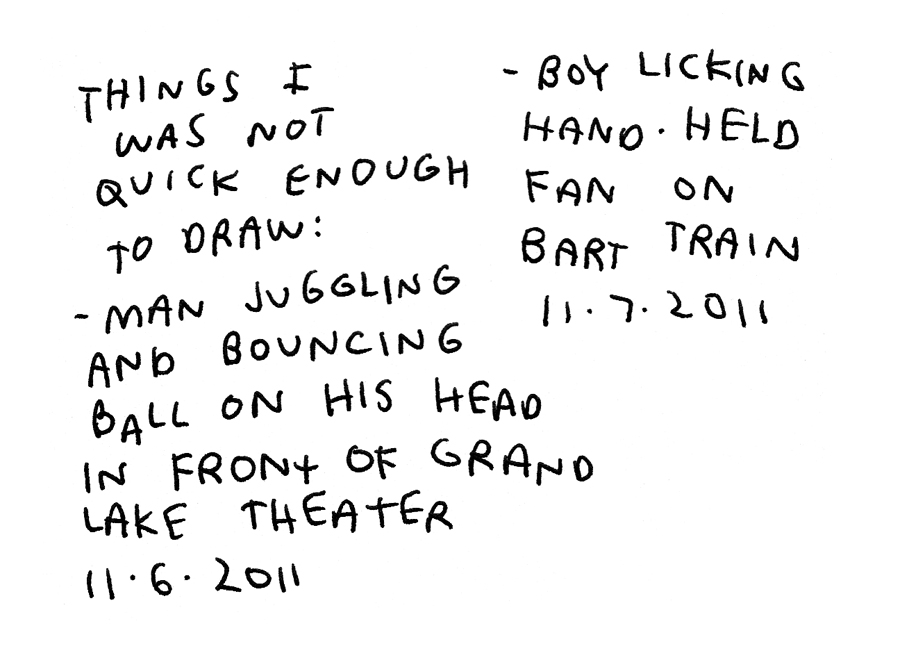 THINGS I
WAS NOT
QUICK ENOUGH
TO DRAW:
- MAN JUGGLING
AND BOUNCING
BALL ON HIS HEAD
IN FRONT OF GRAND
LAKE THEATER
11.6.2011
- BOY LICKING
HAND.HELD
FAN ON
BART TRAIN
11.7.2011